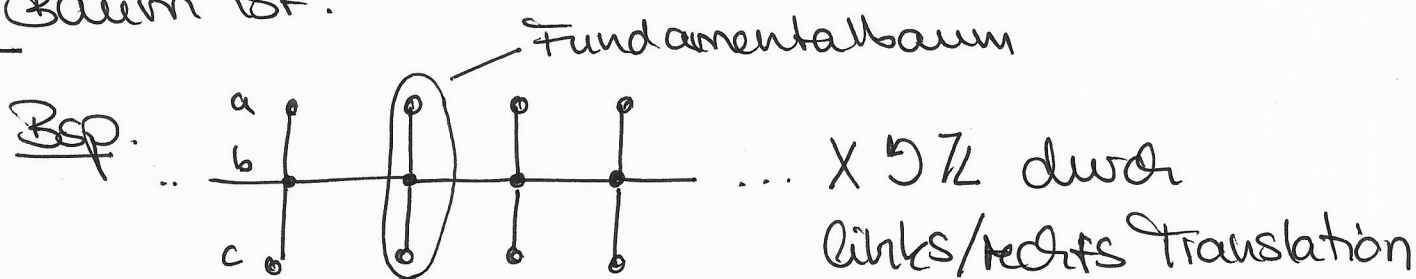 Baum ist.
Fundamentalbaum
Bsp.
a
b
c
.. ... X ↺ ℤ durch
links/rechts Translation